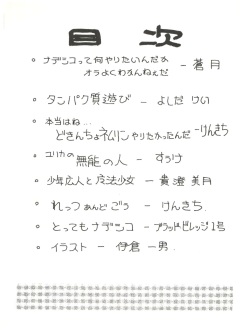 目次
・ナデシコって何やりたいんだか
オラよくわかんねえだ － 蒼月
・タンパク質遊び － よしだ けい
・本当はね…
どきんちょネムリンやりたかったんだ － けんきち
・ユリカの無能の人 － すうけ
・少年広人と魔法少女 － 貴澄美月
・れっつあんどごう － けんきち.
・とってもナデシコ － ブラッドビレッジ1号
・イラスト － 伊倉一男.